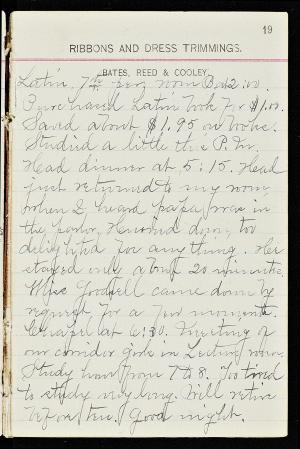 19
RIBBONS AND DRESS TRIMMINGS.
BATES, REED & COOLEY
Latin, 7th per,
Purchased Latin book for $1.00.
Saved about $1.95 on books.
Studied a little this P.M.
Had dinner at 5:15. Had
just returned to my room,
when I heard papa was in
the parlor, Hurried down, too
delighted for anything. He
stayed only about 20 minutes.
Miss Goodsell came down by
request for a few moments.
Chapel at 6:30. Meeting of
our corridor girls in Lecture room.
Study hour from 7 to 8. Too tired
to study very long. Will retire
before ten. Good night.